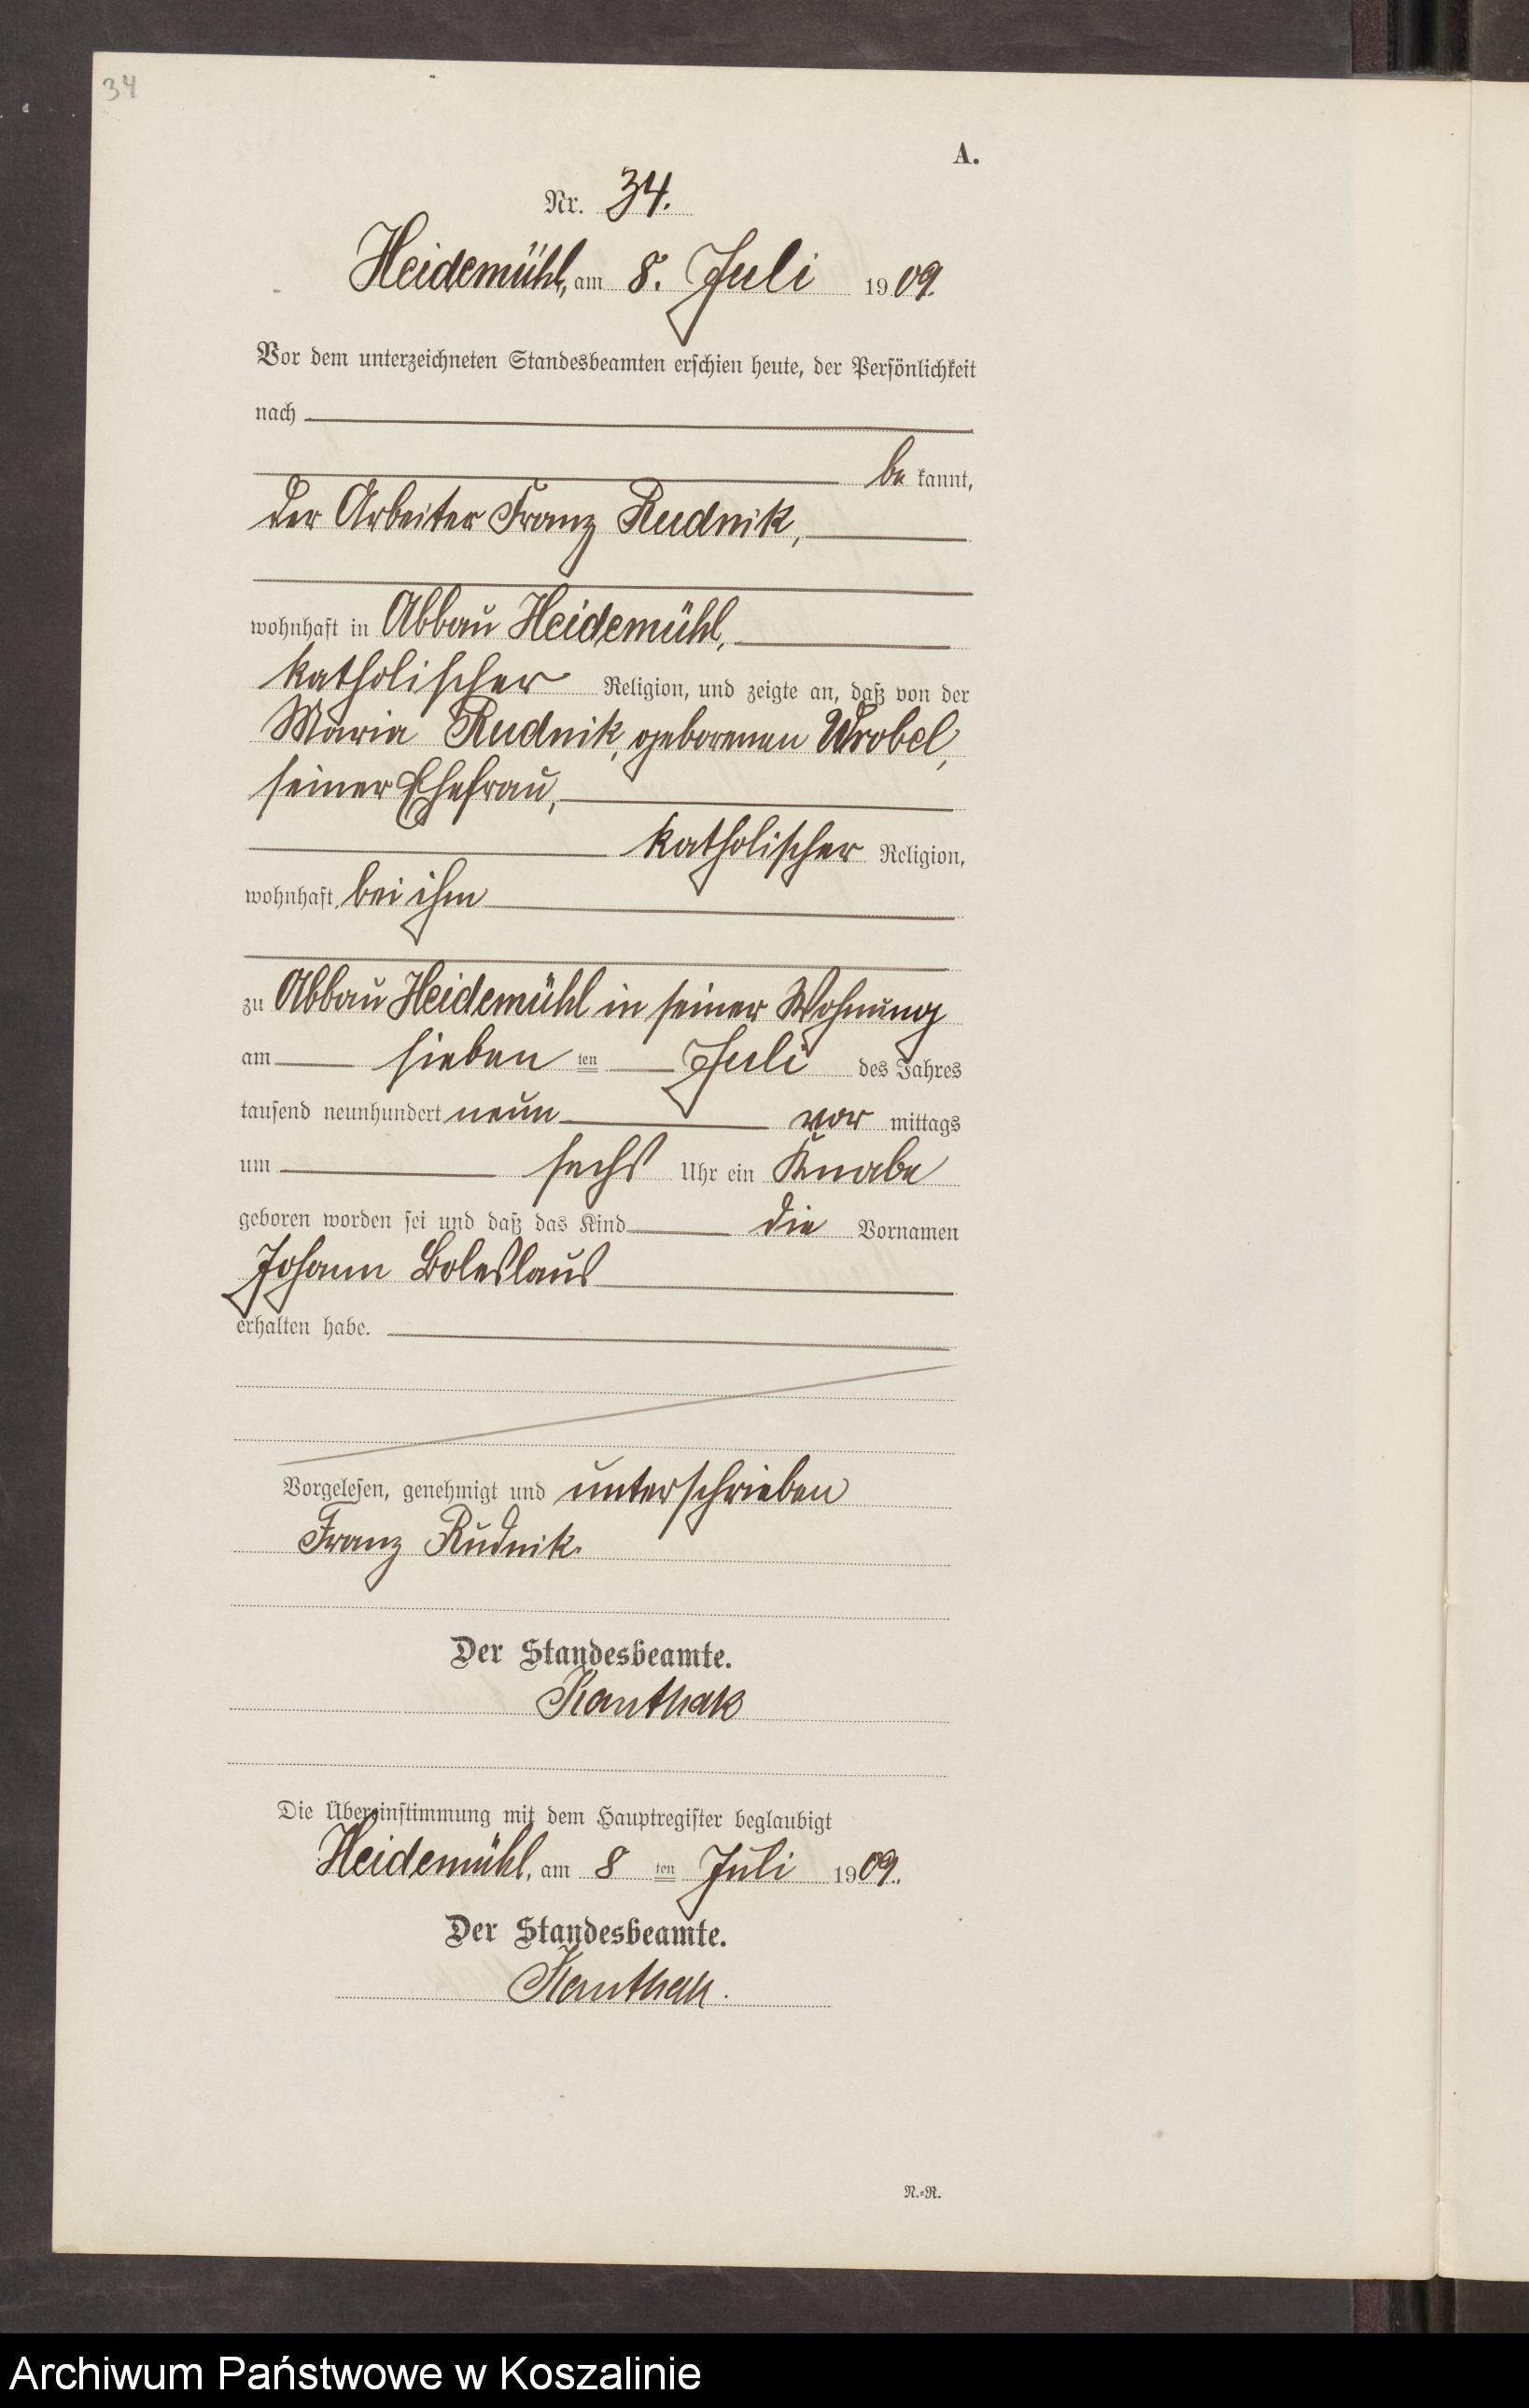 34
A.
Nr. 34.
Heidemühl, am 8. Juli 1909.
Vor dem unterzeichneten Standesbeamten erschien heute, der Persönlichkeit
nach
be kannt,
der Arbeiter Franz Rudnik,
wohnhaft in Abbau Heidemühl,
katholischer Religion, und zeigte an, daß von der
Maria Rudnik, geborenen Wrobel,
seiner Ehefrau,
katholischer Religion,
wohnhaft bei ihm
zu Abbau Heidemühl in seiner Wohnung
am sieben ten Juli des Jahres
tausend neunhundert neun vor mittags
um sechs Uhr ein Knabe
geboren worden sei und daß das Kind die Vornamen
Johann Boleslaus
erhalten habe.
Vorgelesen, genehmigt und unterschrieben
Franz Rudnik.
Der Standesbeamte.
Kanthak
Die Übereinstimmung mit dem Hauptregister beglaubigt
Heidemühl, am 8 ten Juli 1909.
Der Standesbeamte.
Kanthak.
N.=R.
Archiwum Państwowe w Koszalinie